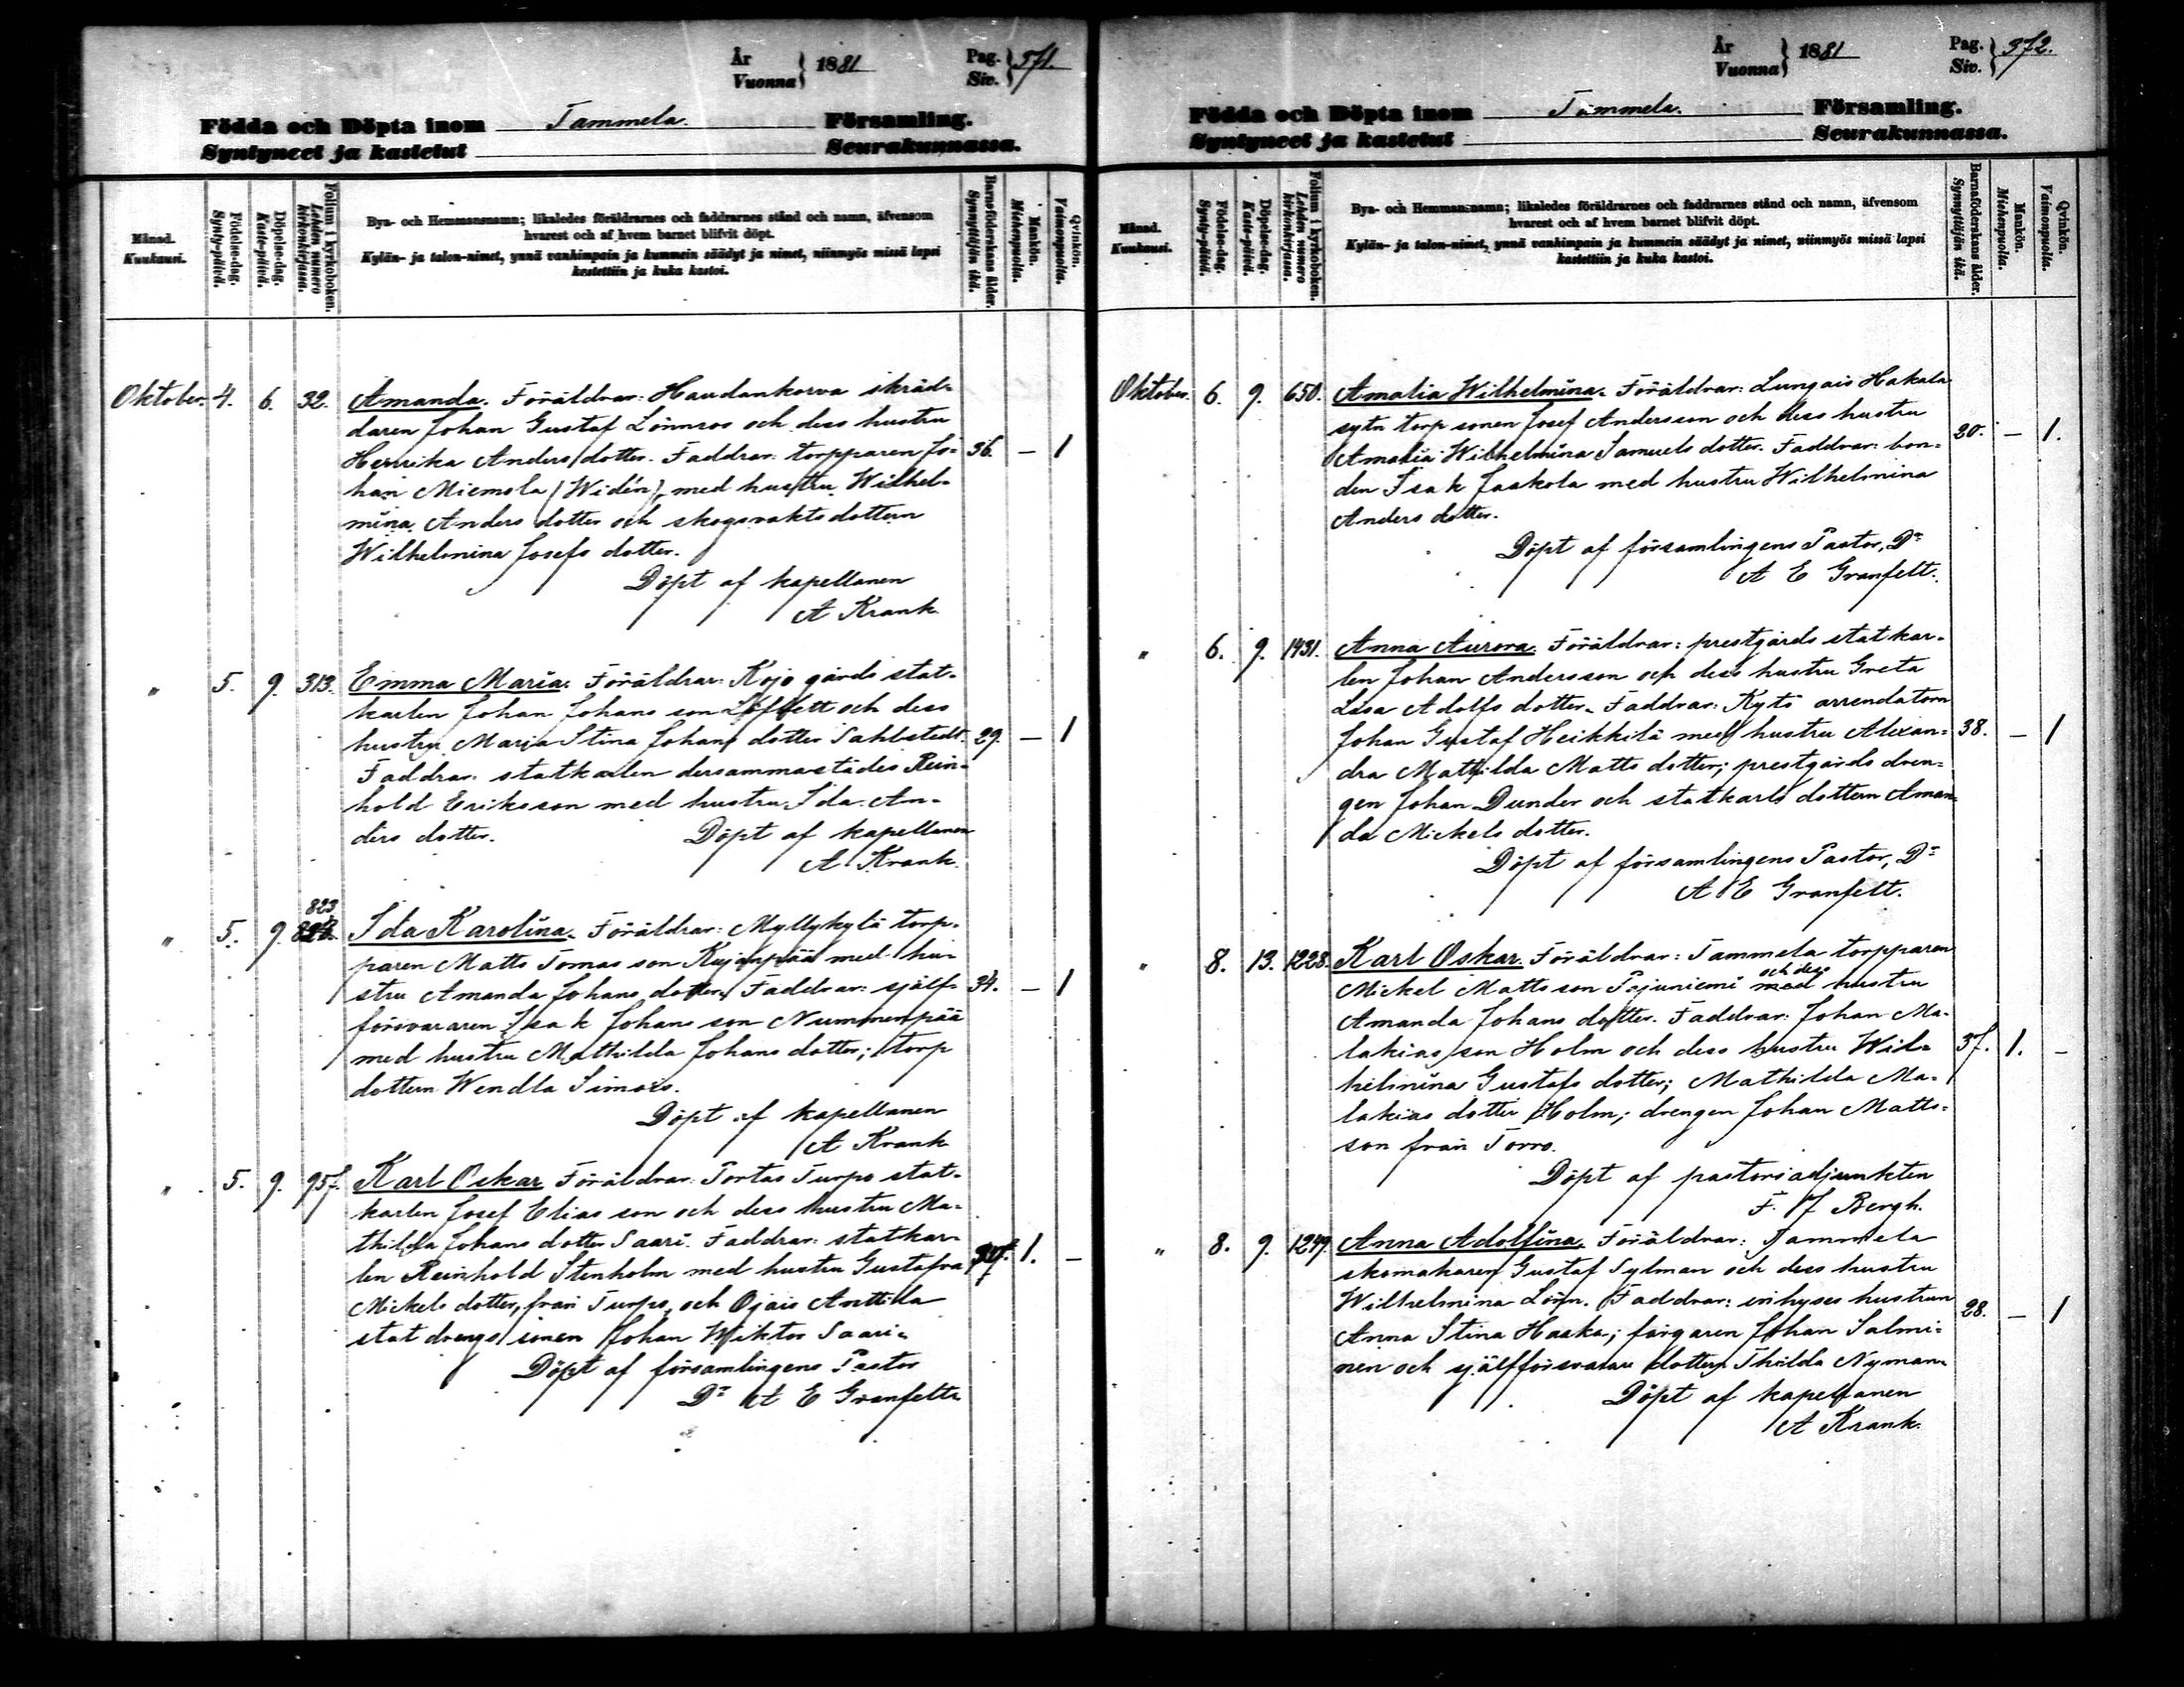 År
Vuonna } 1881
Pag.
Siv. } 571.
Födda och Döpta inom Tammela. Församling.
Syntyneet ja kastetut Seurakunnassa.
Månad.
Kuukausi.
Födelse-dag.
Synty-päivä.
Döpelse-dag.
Kaste-päivä.
Folium i kyrkoboken.
Lehden numero kirkonkirjassa.
Bya- och Hemmansnamn; likaledes föräldrarnes och faddrarnes stånd och namn, äfvensom
hvarest och af hvem barnet blifvit döpt.
Kylän- ja talon-nimet, ynnä vanhimpain ja kummein säädyt ja nimet, niinmyös missä lapsi
kastettiin ja kuka kastoi.
Barnaföderskans ålder.
Synnyttäjän ikä.
Mankön.
Miehenpuolta.
Qvinkön.
Vaimonpuolta.
Oktober. 4. 6. 32. Amanda. Föräldrar: Haudankorva skräd-
daren Johan Gustaf Lönnroos och dess hustru
Henrika Anders dotter. Faddrar: torpparen Jo- 36. — 1
han Miemola (Widén) med hustru Wilhel-
mina Anders dotter och skogsvaktsdottern
Wilhelmina Josefs dotter.
Döpt af kapellanen
A Krank
" 5. 9. 313. Emma Maria. Föräldrar: Kojo gårds stat-
karlen Johan Johans son Löfstett och dess
hustru Maria Stina Johans dotter Sahlstedt. 29. — 1
Faddrar: statkarlen dersammastädes Rein-
hold Eriksson med hustru Ida An-
ders dotter. Döpt af kapellanen
A Krank.
823
" 5. 9. Ida Karolina. Föräldrar: Myllykylä torp-
paren Matts Tomas son Kujanpää med hu-
stru Amanda Johans dotter. Faddrar: själf- 34. — 1
försvararen Isak Johans son Nummenpää
med hustru Mathilda Johans dotter; torp
dottern Wendla Simois.
Döpt af kapellanen
A Krank
" 5. 9. 957. Karl Oskar Föräldrar: Portas Turpo stat-
karlen Josef Elias son och dess hustru Ma-
thilda Johans dotter Saari. Faddrar: statkar-
len Reinhold Stenholm med hustru Gustafva 1. —
Mickels dotter, från Turpo, och Ojais Anttila
stat drengs sonen Johan Wiktor Saari-
Döpt af församlingens Pastor
Dr A E Granfelt
År
Vuonna } 1881
Pag.
Siv. } 572.
Födda och Döpta inom Tammela. Församling.
Syntyneet ja kastetut Seurakunnassa.
Månad.
Kuukausi.
Födelse-dag.
Synty-päivä.
Döpelse-dag.
Kaste-päivä.
Folium i kyrkoboken.
Lehden numero kirkonkirjassa.
Bya- och Hemmansnamn; likaledes föräldrarnes och faddrarnes stånd och namn, äfvensom
hvarest och af hvem barnet blifvit döpt.
Kylän- ja talon-nimet, ynnä vanhimpain ja kummein säädyt ja nimet, niinmyös missä lapsi
kastettiin ja kuka kastoi.
Barnaföderskans ålder.
Synnyttäjän ikä.
Mankön.
Miehenpuolta.
Qvinkön.
Vaimonpuolta.
Oktober. 6. 9. 650. Amalia Wilhelmina. Föräldrar: Lungais Hakala
sytn torp sonen Josef Andersson och dess hustru
Amalia Wilhelmina Samuels dotter. Faddrar: bon- 20. — 1.
den Isak Jaakola med hustru Wilhelmina
Anders dotter.
Döpt af församlingens Pastor, Dr
A E Granfelt.
" 6. 9. 1431. Anna Aurora. Föräldrar: prestgårds statkar-
len Johan Andersson och dess hustru Greta
Lisa Adolfs dotter. Faddrar: Kytö arrendatorn
Johan Gustaf Heikkilä med hustru Alexan- 38. — 1
dra Mathilda Matts dotter; prestgårds dren-
gen Johan Dunder och statkarls dottern Aman-
da Mickels dotter.
Döpt af församlingens Pastor, Dr
A E Granfelt.
" 8. 13. 1228. Karl Oskar. Föräldrar: Tammela torpparen
Mickel Mattsson Pajuniemi med och dess hustru
Amanda Johans dotter. Faddrar: Johan Ma-
lakias son Holm och dess hustru Wil- 37. 1. —
helmina Gustafs dotter; Mathilda Ma-
lakias dotter Holm; drengen Johan Matts-
son från Torro.
Döpt af pastorsadjunkten
F. J Bergh.
" 8. 9. 1249. Anna Adolfina. Föräldrar: Tammela
skomakaren Gustaf Sylman och dess hustru
Wilhelmina Lönn. Faddrar: inhyses hustrun 28. — 1
Anna Stina Haaka; färgaren Johan Salmi-
nen och själfförsvarare dottern Thilda Nyman
Döpt af kapellanen
A Krank.